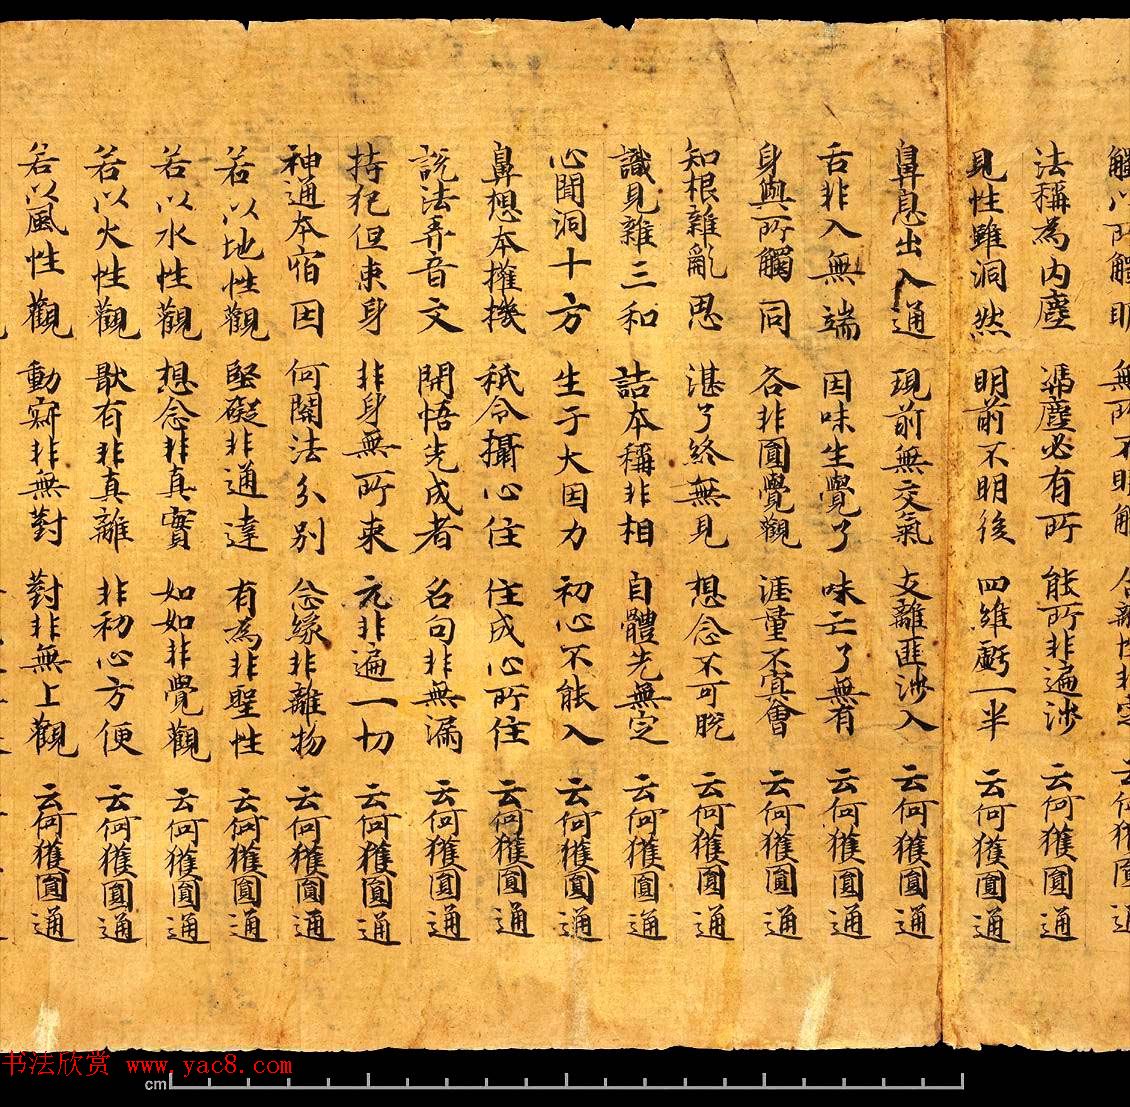 觸以所觸明 無所不明觸 合離性非定 云何獲圓通
法稱為內塵 憑塵必有所 能所非遍涉 云何獲圓通
見性雖洞然 明前不明後 四維虧一半 云何獲圓通
鼻息出入通 現前無交氣 支離匪涉入 云何獲圓通
舌非入無端 因味生覺了 味亡了無有 云何獲圓通
身與所觸同 各非圓覺觀 涯量不冥會 云何獲圓通
知根雜亂思 湛了終無見 想念不可脫 云何獲圓通
識見雜三和 詰本稱非相 自體先無定 云何獲圓通
心聞洞十方 生于大因力 初心不能入 云何獲圓通
鼻想本權機 秖令攝心住 住成心所住 云何獲圓通
說法弄音文 開悟先成者 名句非無漏 云何獲圓通
持犯但束身 非身無所束 元非遍一切 云何獲圓通
神通本宿因 何關法分別 念緣非離物 云何獲圓通
若以地性觀 堅礙非通達 有為非聖性 云何獲圓通
若以水性觀 想念非真實 如如非覺觀 云何獲圓通
若以火性觀 猒有非真離 非初心方便 云何獲圓通
若以風性觀 動寂非無對 對非無上觀 云何獲圓通
书法欣赏 www.yac8.com
cm